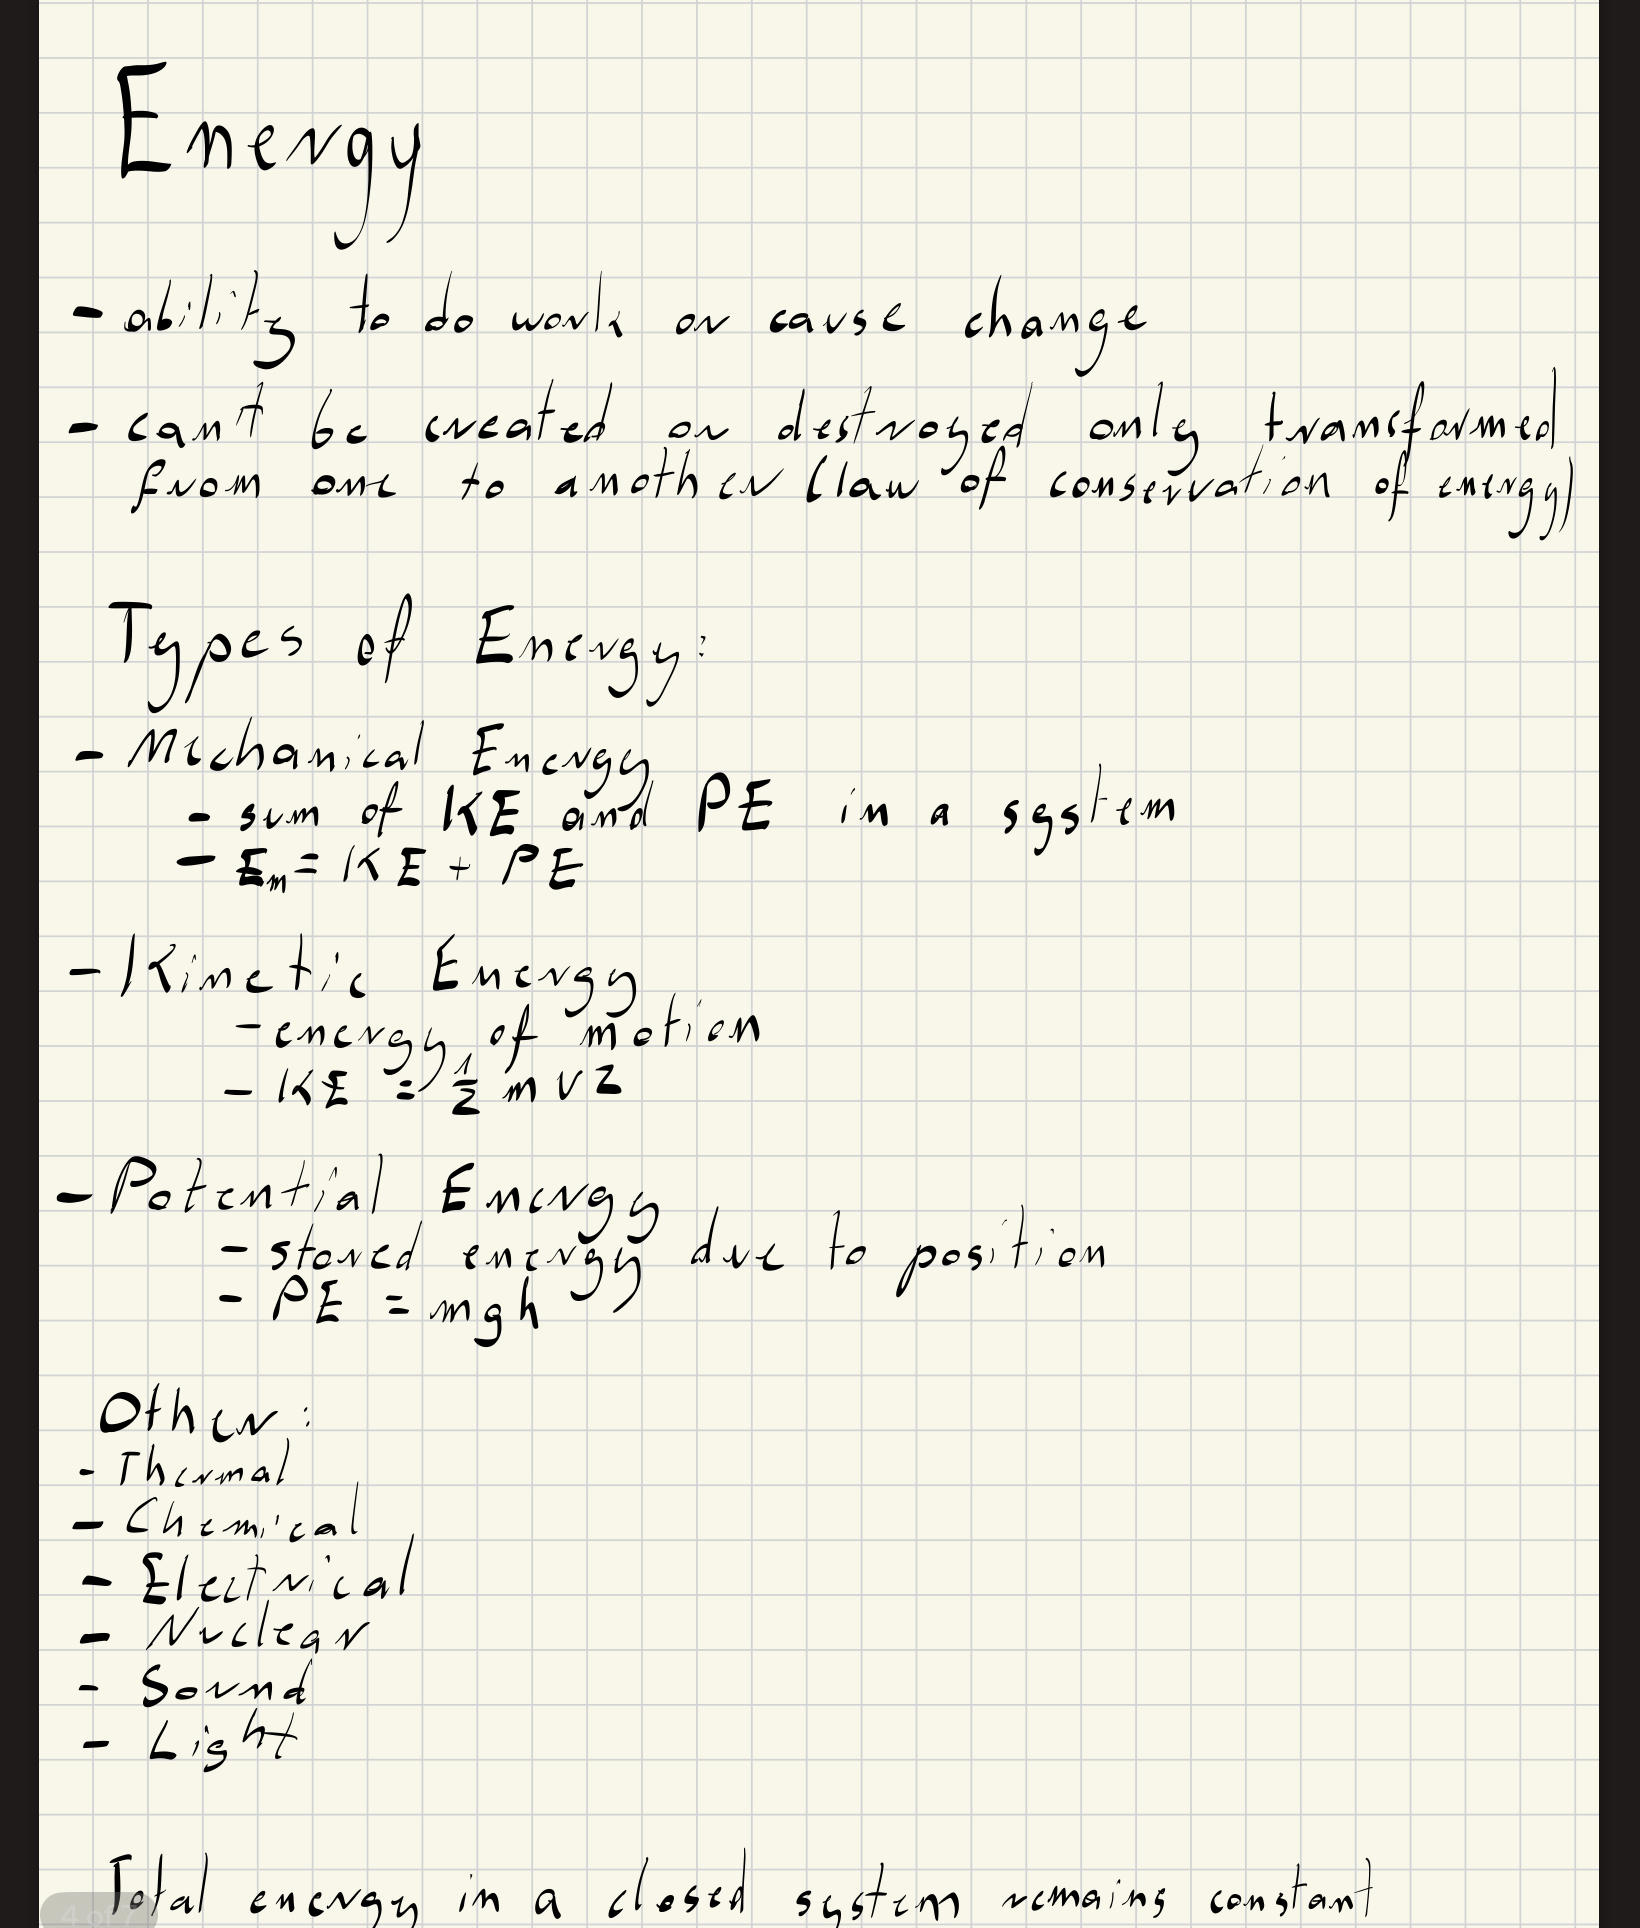 Energy
- ability to do work or cause change
- can't be created or destroyed only transformed
from one to another (law of conservation of energy)
Types of Energy:
- Mechanical Energy
- sum of KE and PE in a system
- Em = KE + PE
- Kinetic Energy
- energy of motion
- KE = 1/2 mv2
- Potential Energy
- stored energy due to position
- PE = mgh
Other:
- Thermal
- Chemical
- Electrical
- Nuclear
- Sound
- Light
Total energy in a closed system remains constant
4 of 7